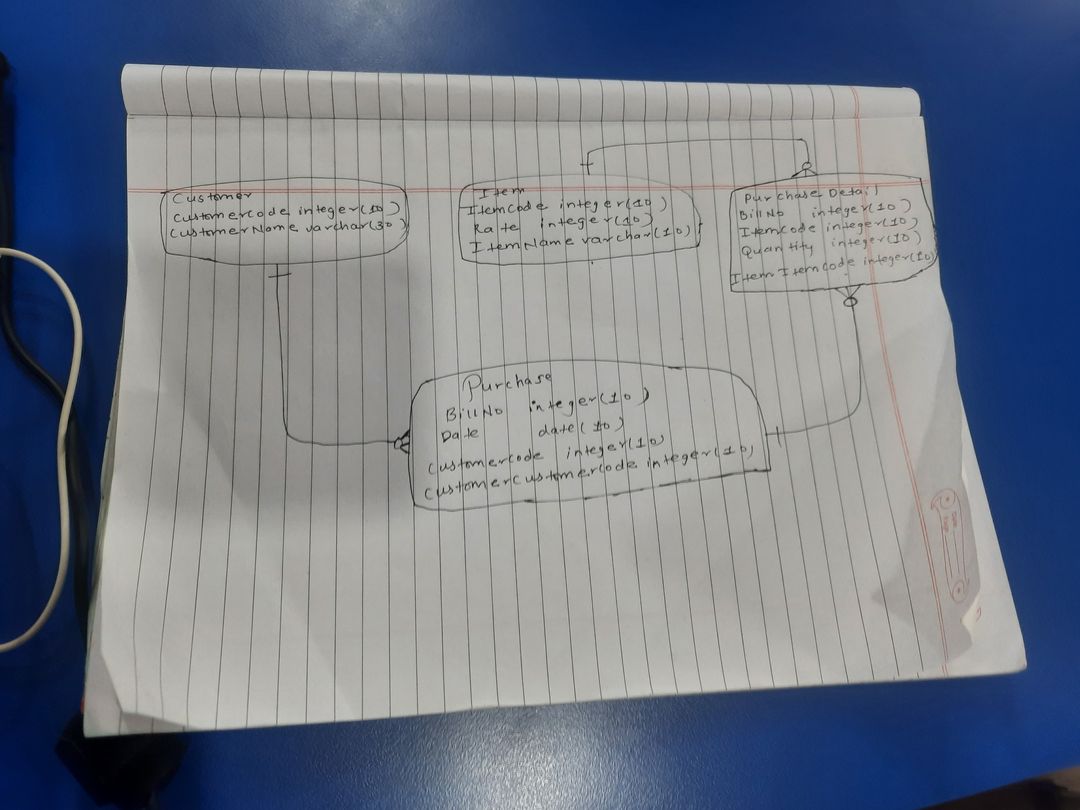 Customer
Customercode integer(10)
CustomerName varchar(30)
Item
Itemcode integer(10)
Rate integer(10)
ItemName varchar(10)
Purchase Detail
BillNo integer(10)
Itemcode integer(10)
Quantity integer(10)
Item Itemcode integer(10)
Purchase
BillNo integer(10)
Date date(10)
Customercode integer(10)
CustomerCustomercode integer(10)